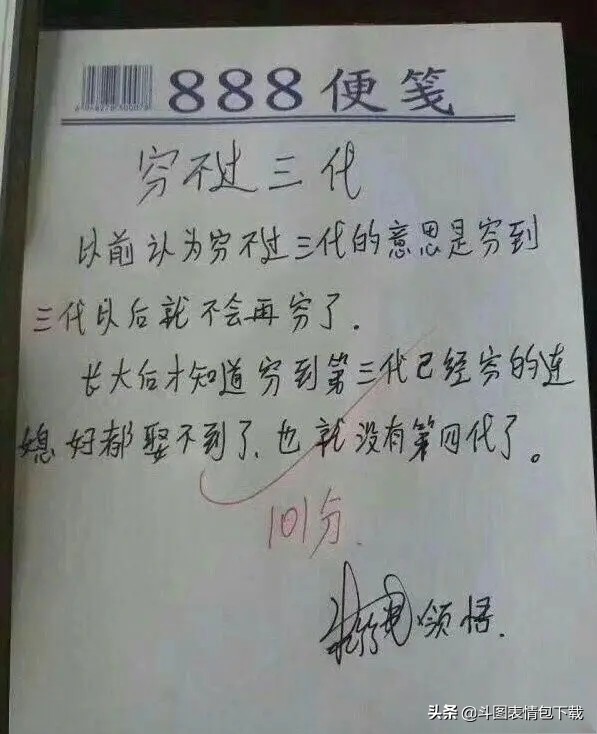 888便笺
穷不过三代
以前认为穷不过三代的意思是穷到
三代以后就不会再穷了.
长大后才知道穷到第三代已经穷的连
媳妇都娶不到了、也就没有第四代了。
101分.
领悟.
头条 @斗图表情包下载